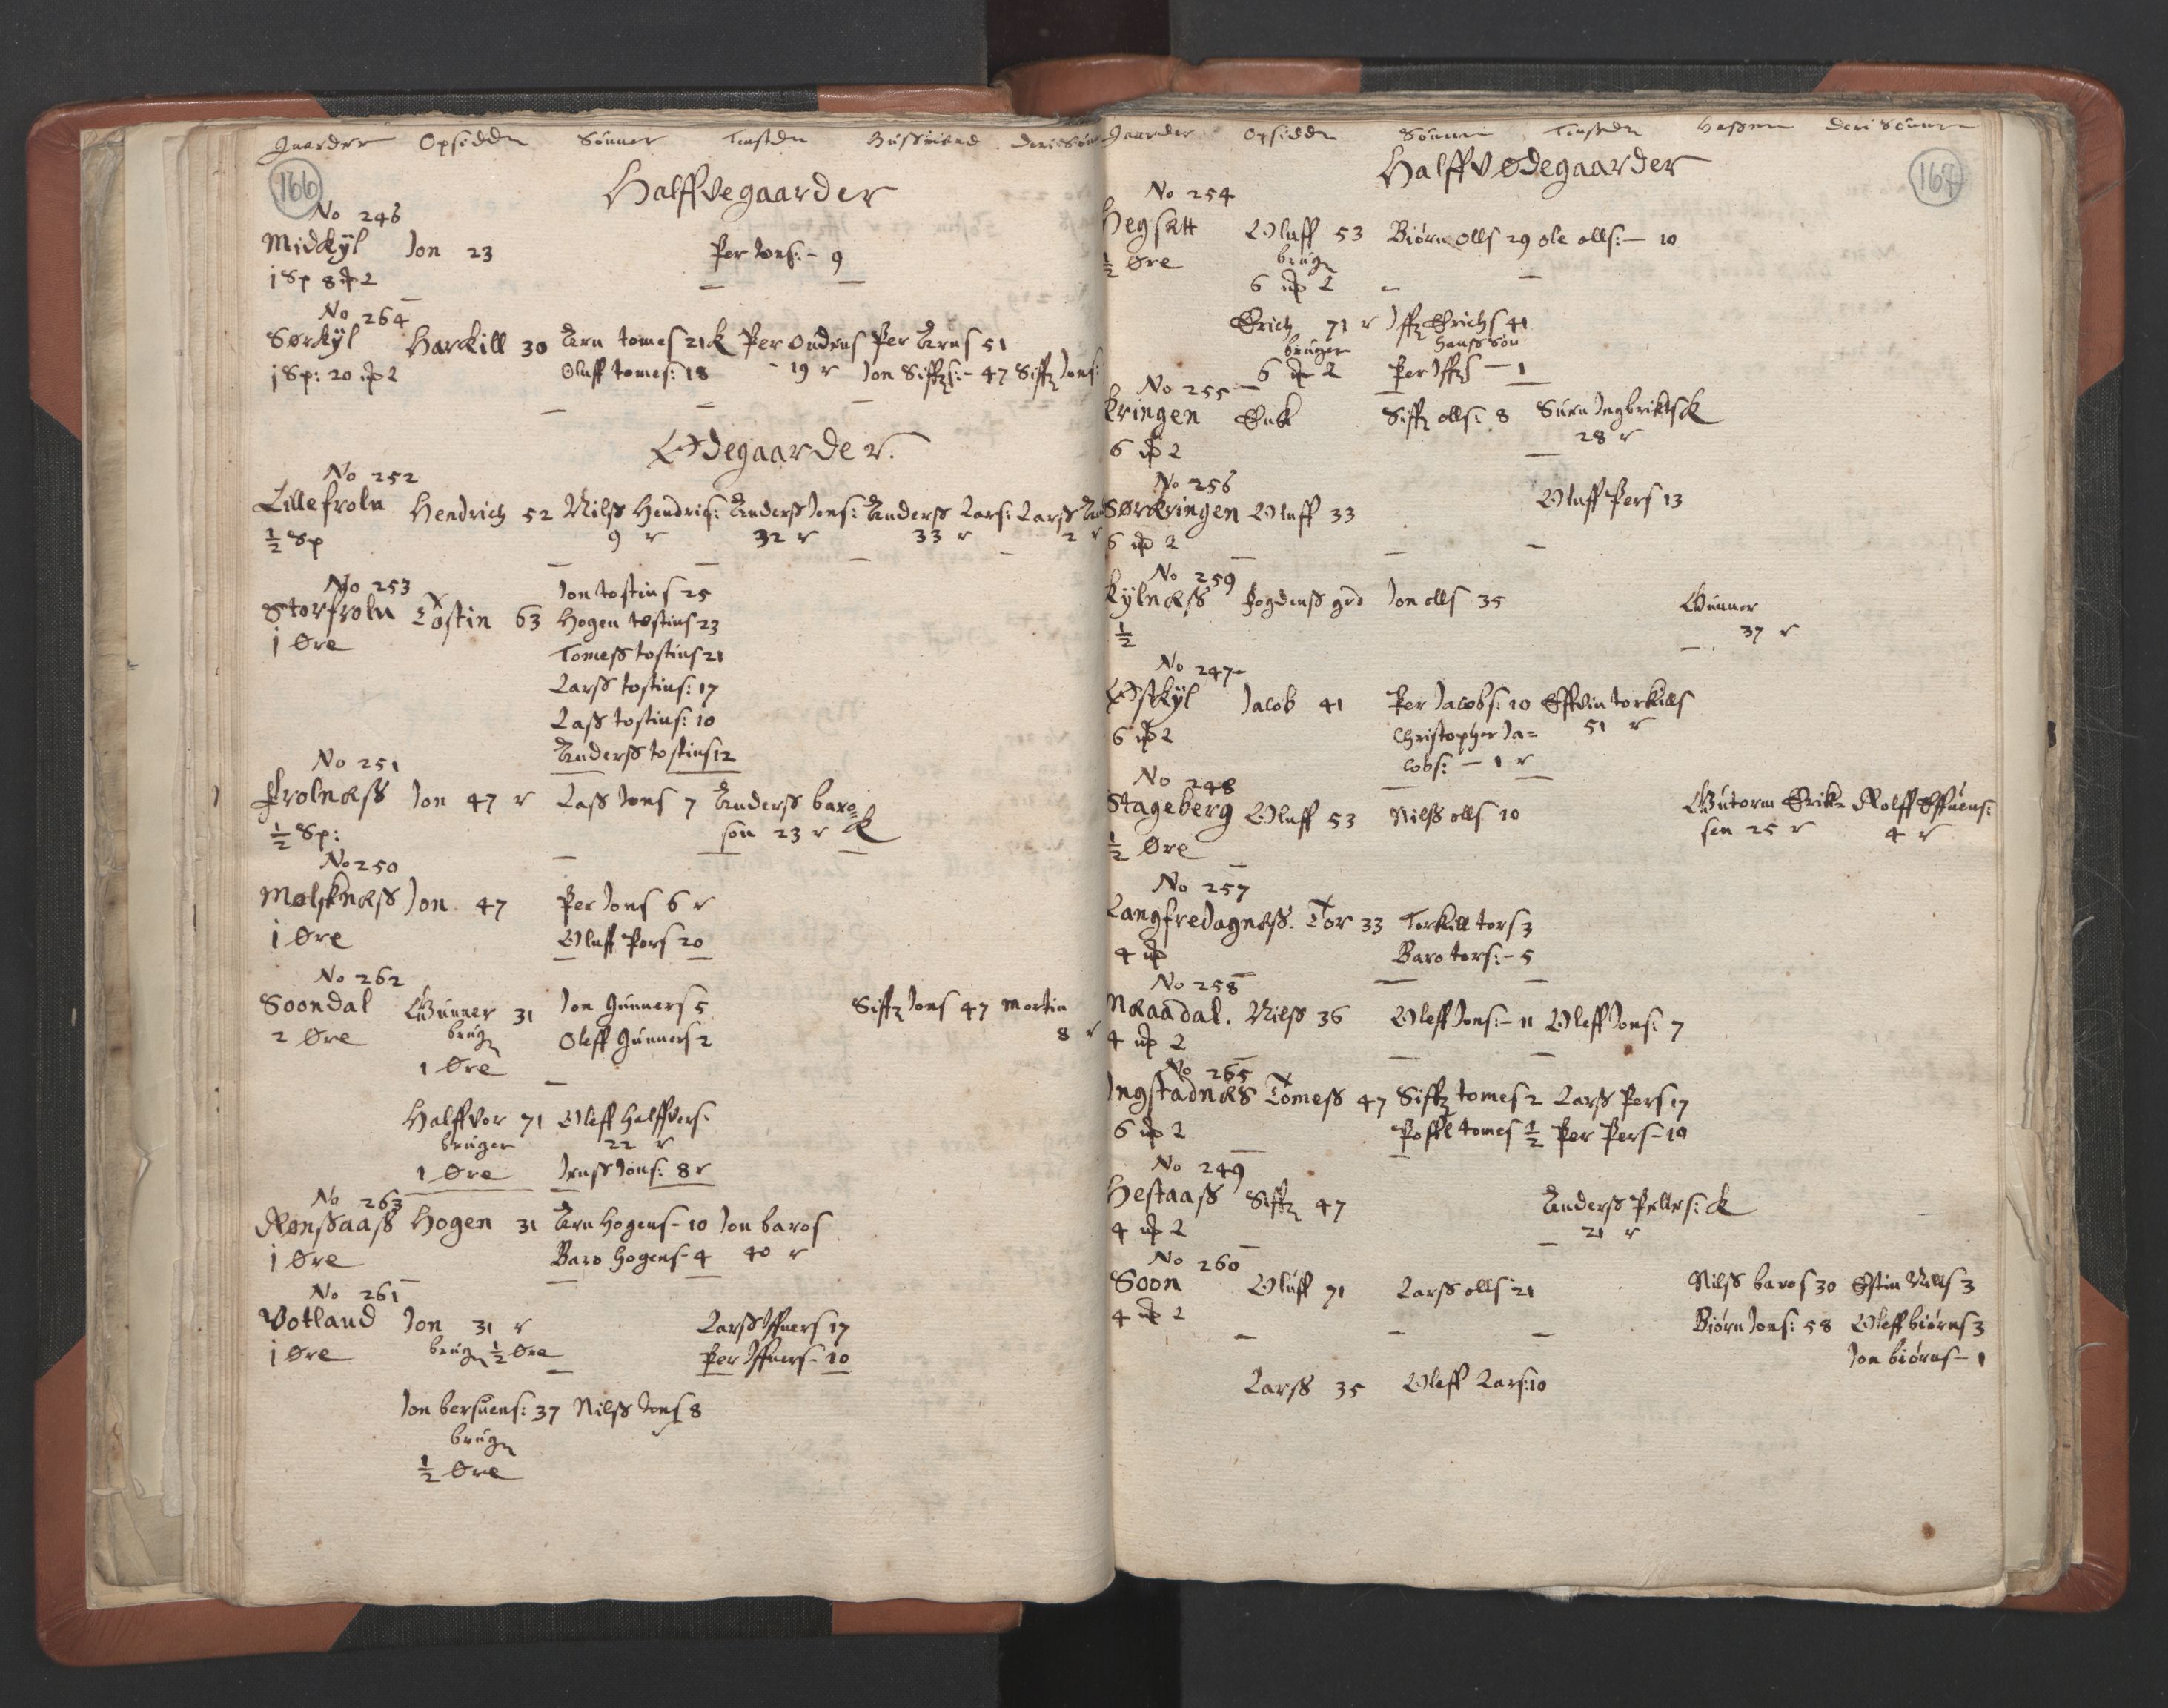 Gaarder Opsidder Sønner Tienester Hussmend Deris Sønner
166
Halffvegaarder
No 246
Midkÿl Jon 23 Per Jons: - 9
j Sp 8 ꝥ 2
No 264
Sørkÿl Harckill 30 Arn tomes 21 k Per Ondens Per Arns 51
j Sp: 20 ꝥ 2 Oluff tomes: 18 - 19 r Jon Siffrs: - 47 Siffr Jons:
Ødegaarder.
No 252
Lille froln Hendrich 52 Nilss Hendrics: Anderss Jons: Anderss Lars: Larss
½ Sp 9 r 32 r 33 r 2 r
No 253 Jon tostins 25
Storfroln Tostin 63 Hogen tostins 23
j Øre Tomess tostins 21
Larss tostins: 17
Lass tostins: 10
Anderss tostins 12
No 251
frolness Jon 47 r Lass Jons 7 Anderss baro=
½ Sp: søn 23 r k
No 250
Molsknæss Jon 47 Per Jons 6 r
j Øre Oluff Pers 20
No 262
Soondal Gunner 31 Jon Gunners 5 Siffr Jons 47 Mortin
2 Øre brugr Oleff Gunners 2 8 r
1 Øre
Halffvor 71 Oleff Halffvors:
bruger 22 r
1 Øre Jenss Jons: 8 r
No 263
Rønssaass Hogen 31 Arn Hogens - 10 Jon baros
j Øre Baro hogens - 4 40 r
No 261
Votland Jon 31 r Larss Iffuers 17
j Øre brugr ½ Øre Per Iffuers - 10
Jon bersuens: 37 Nilss Jons 8
brugr
½ Øre
Gaarder Opsidder Sønner Tienester Hussmen Deris Sønner
167
Halffvødegaarder
No 254
Hegsett Oluff 53 Biørn olls 29 ole olls: - 10
½ Øre brugr
6 ꝥ 2
Erich 71 r Iffr Erichs 41
bruger hanss søn
6 ꝥ 2 Per Iffrs - 1
No 255
Kringen Enk Siffr olls: 8 Suen Ingbrikts k
6 ꝥ 2 28 r
No 256
Sørkringen Oluff 33 Oluff Pers 13
6 ꝥ 2
No 259
Kÿlnæss fogdenss grd Jon olls 35 Gunner
½ 37 r
No 247
Østkÿl Jacob 41 Per Jacobs: 10 Effvin torkills
6 ꝥ 2 Christopher Ja= 51 r
cobs: - 1 r
No 248
Stageberg Oluff 53 Nilss olls 10 Gutorm Erik= Rolff Effuens:
½ Øre sen 25 r 4 r
No 257
Langfredagnæss. Tor 33 Torkill tors 3
4 ꝥ Baro tors: - 5
No 258
Naaadal. Nilss 36 Oleff Jons: - 11 Oleff Jons: 7
4 ꝥ 2
No 265
Ingstadnæs Tomess 47 Siffr tomes 2 Larss Pers 17
6 ꝥ 2 Poffl tomes ½ Per Pers - 10
No 249
Hestaass Siffr 47 Anderss Pelles: k
4 ꝥ 2 21 r
No 260
Soon Oluff 71 Larss olls 21 Nilss baros 30 Estin Nills 3
4 ꝥ 2 Biørn Jons: 58 Oleff biørns 3
Jon biørns - 1
Larss 35 Oleff Lars: 10